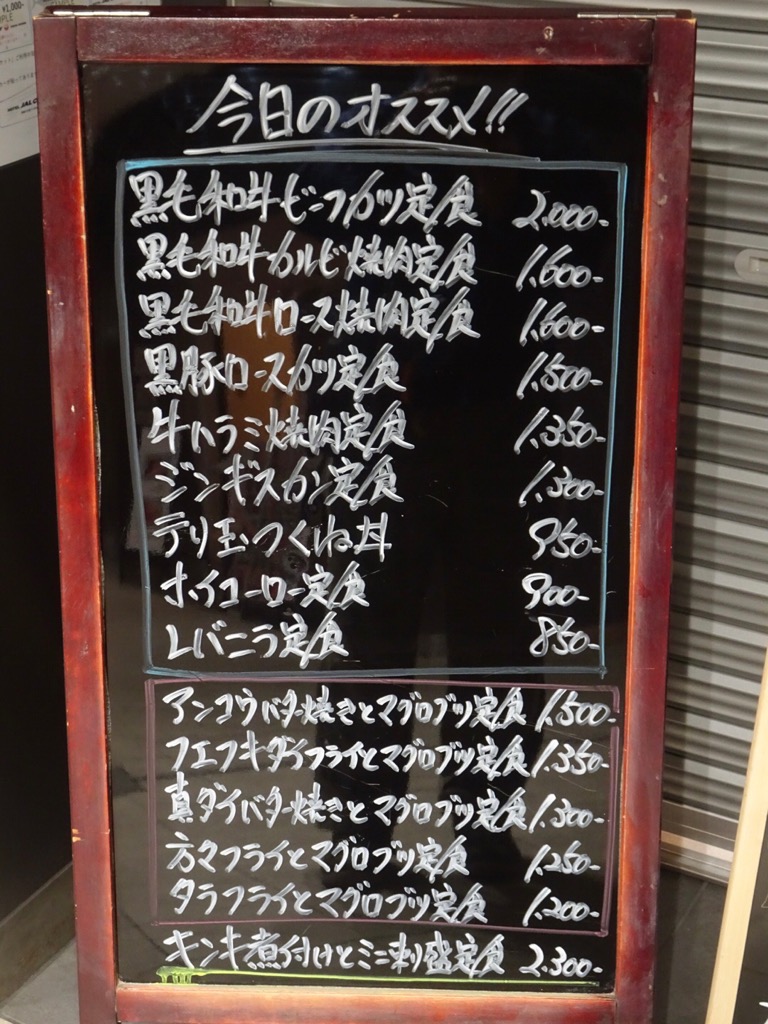 ¥1,000-
今日のオススメ!!
黒毛和牛ビーフカツ定食 2,000-
黒毛和牛カルビ焼肉定食 1,600-
黒毛和牛ロース焼肉定食 1,600-
黒豚ロースカツ定食 1,500-
牛ハラミ焼肉定食 1,350-
ジンギスカン定食 1,300-
テリ玉つくね丼 950-
ホイコーロー定食 900-
レバニラ定食 850-
アンコウバター焼きとマグロブツ定食 1,500-
フエフキダイフライとマグロブツ定食 1,350-
真ダイバター焼きとマグロブツ定食 1,300-
方々フライとマグロブツ定食 1,250-
タラフライとマグロブツ定食 1,200-
キンキ煮付けとミニ刺盛定食 2,300-